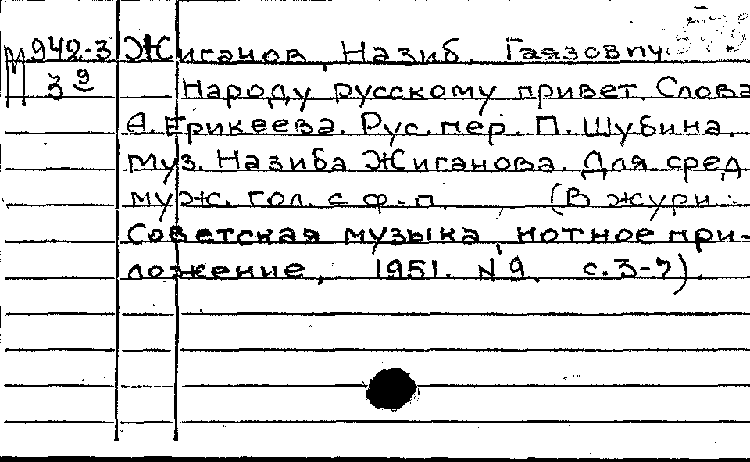 М 942-3 Жиганов, Назиб. Гаязович.
3 9 Народу русскому привет. Слова
А. Ерикеева. Рус. пер. П. Шубина.
Муз. Назиба Жиганова. Для сред.
муж. гол. с ф-п. (В журн.:
Советская музыка, нотное при-
ложение, 1951. N 9. с. 3-7).